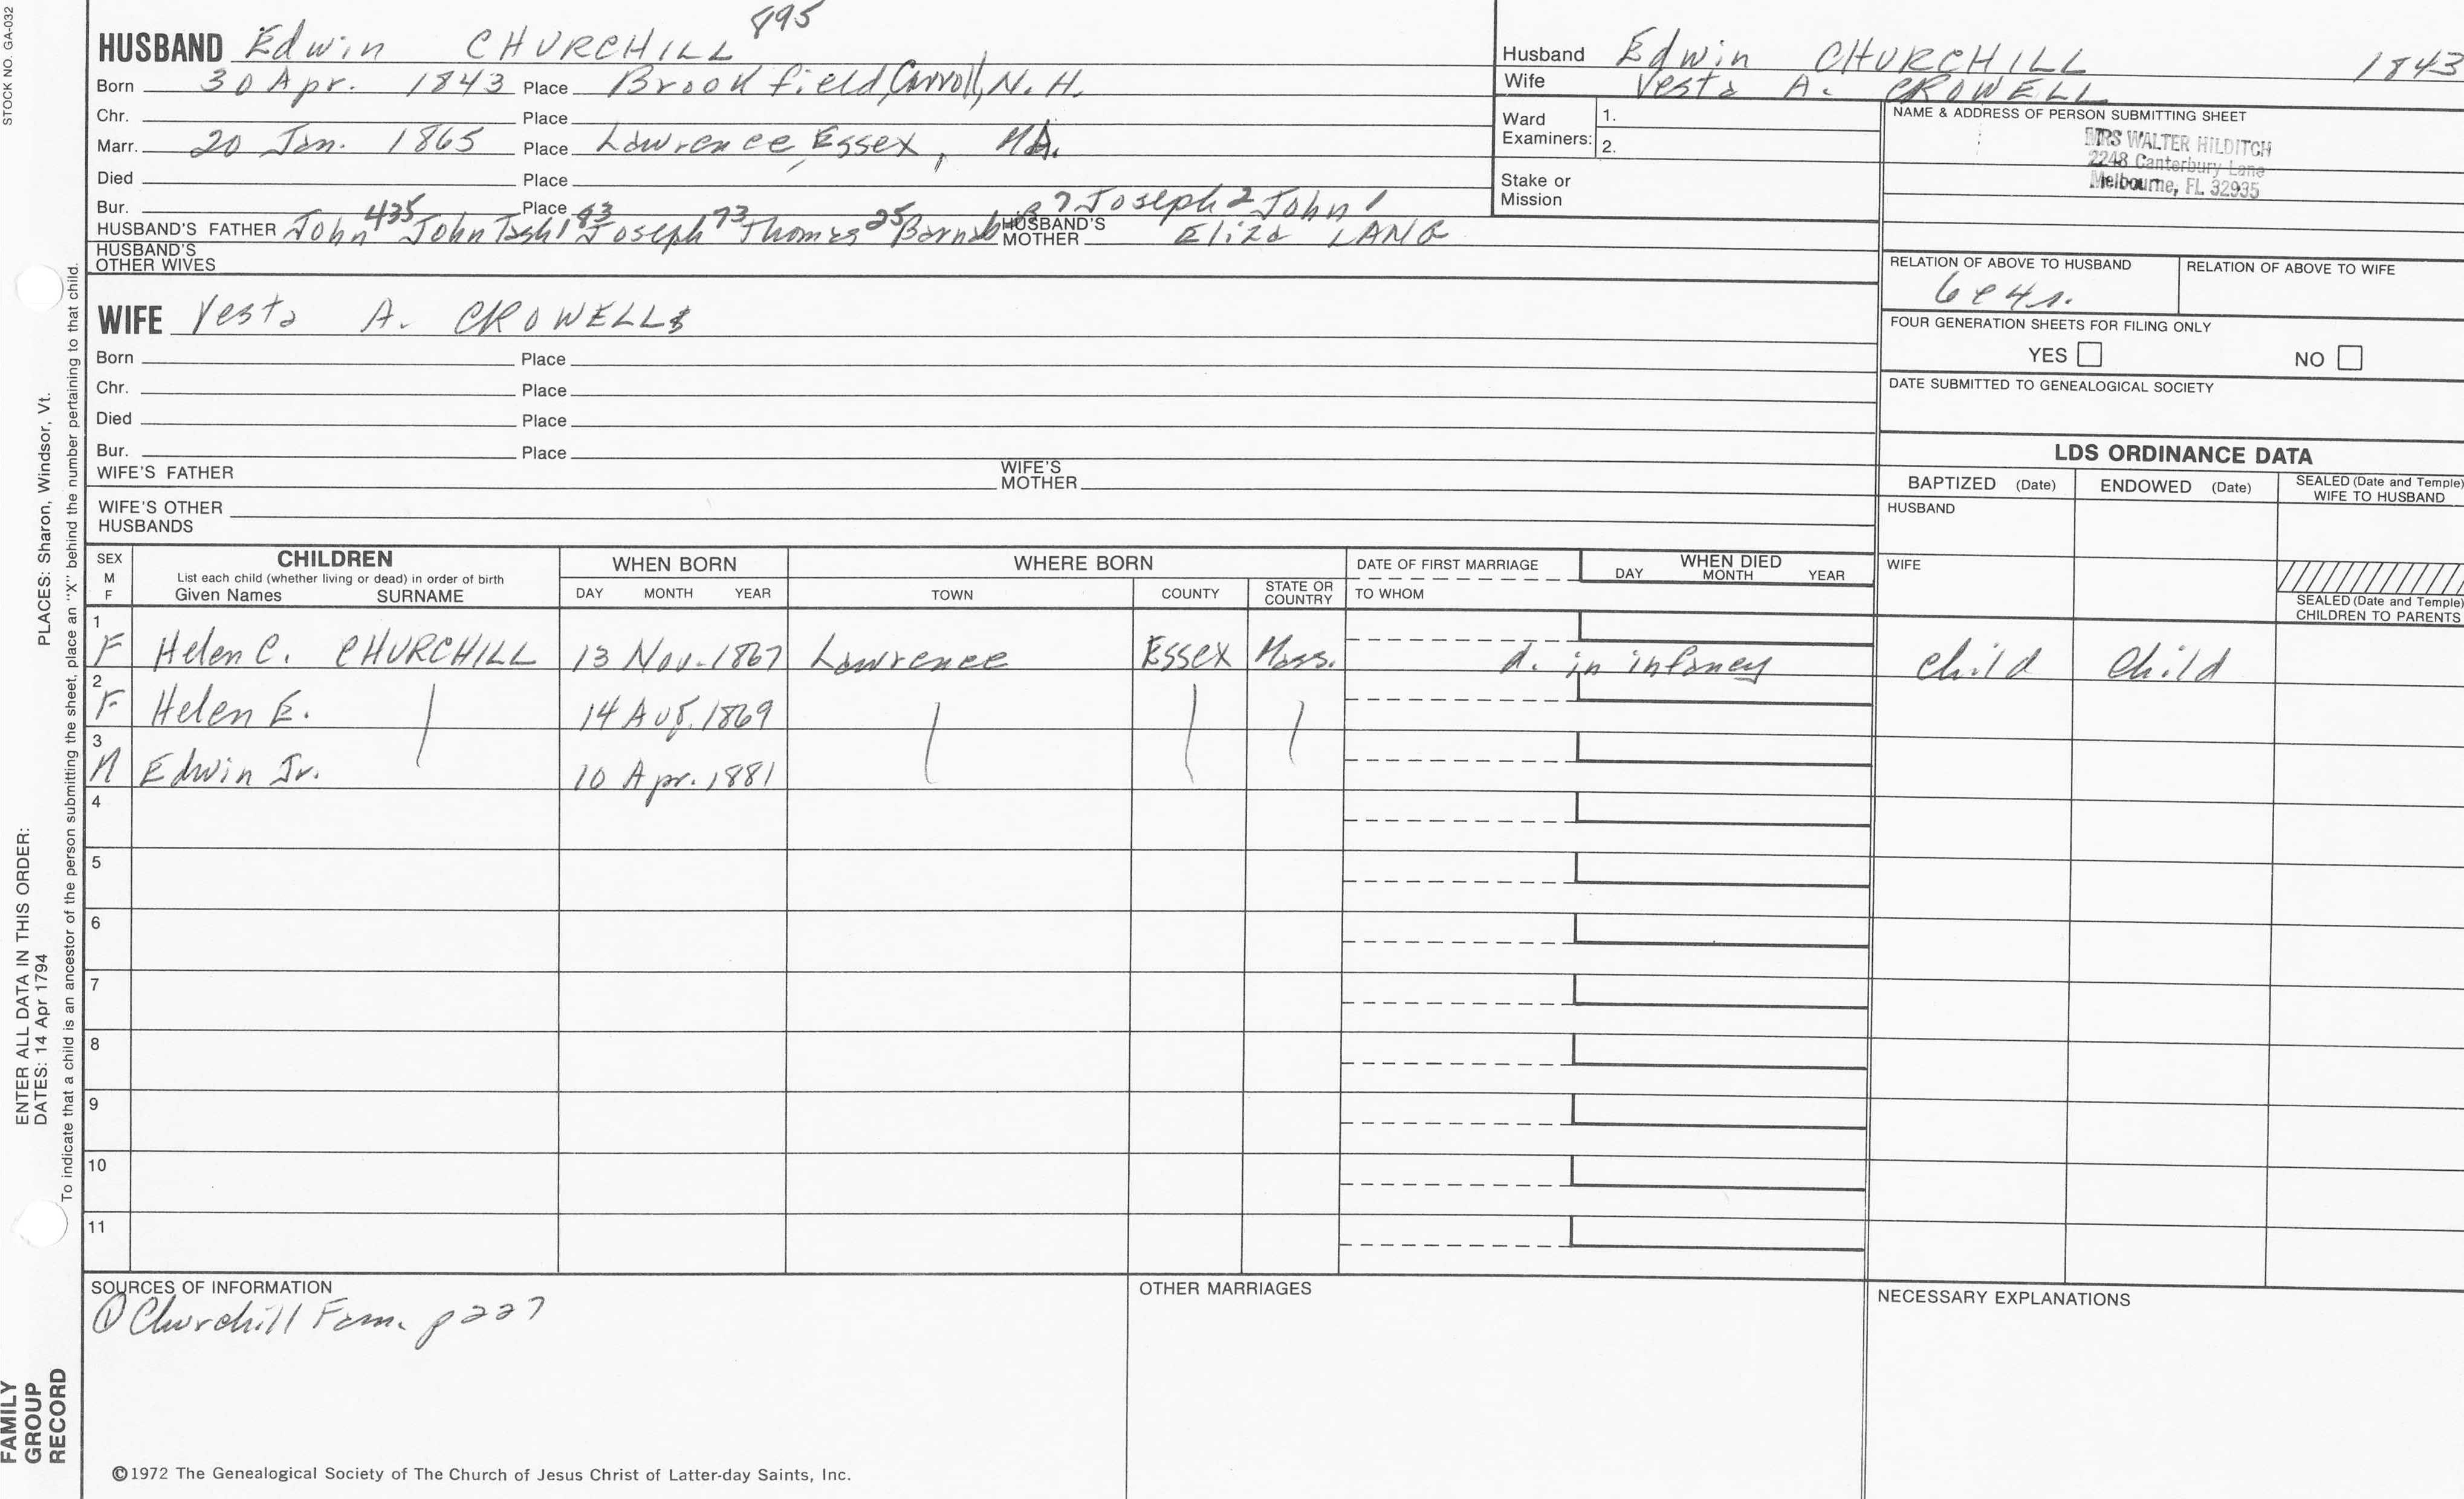 STOCK NO. GA-032
895
HUSBAND Edwin CHURCHILL
Born 30 Apr. 1843 Place Brookfield, Carroll, N. H.
Chr. Place
Marr. 20 Jan. 1865 Place Lawrence, Essex, MA.
Died Place
Bur. Place 7 Joseph 2 John 1
HUSBAND'S FATHER John 435 John Tash 183 Joseph 73 Thomas 25 Barnabas HUSBAND'S MOTHER Eliza LANG
HUSBAND'S OTHER WIVES
Husband Edwin CHURCHILL 1843
Wife Vesta A. CROWELL
Ward Examiners: 1.
2.
Stake or Mission
NAME & ADDRESS OF PERSON SUBMITTING SHEET
MRS WALTER HILDITCH
2248 Canterbury Lane
Melbourne, FL 32935
RELATION OF ABOVE TO HUSBAND RELATION OF ABOVE TO WIFE
6c4r.
FOUR GENERATION SHEETS FOR FILING ONLY
YES NO
DATE SUBMITTED TO GENEALOGICAL SOCIETY
WIFE Vesta A. CROWELL
Born Place
Chr. Place
Died Place
Bur. Place
WIFE'S FATHER WIFE'S MOTHER
WIFE'S OTHER HUSBANDS
LDS ORDINANCE DATA
BAPTIZED (Date) ENDOWED (Date) SEALED (Date and Temple) WIFE TO HUSBAND
HUSBAND
WIFE
SEALED (Date and Temple) CHILDREN TO PARENTS
SEX M F CHILDREN WHEN BORN WHERE BORN DATE OF FIRST MARRIAGE WHEN DIED
List each child (whether living or dead) in order of birth
Given Names SURNAME DAY MONTH YEAR TOWN COUNTY STATE OR COUNTRY TO WHOM DAY MONTH YEAR
1 F Helen C. CHURCHILL 13 Nov. 1867 Lawrence Essex Mass. d. in infancy child child
2 F Helen E. 14 Aug. 1869
3 M Edwin Jr. 10 Apr. 1881
4
5
6
7
8
9
10
11
SOURCES OF INFORMATION
① Churchill Fam. p 227
OTHER MARRIAGES
NECESSARY EXPLANATIONS
©1972 The Genealogical Society of The Church of Jesus Christ of Latter-day Saints, Inc.
FAMILY
GROUP
RECORD
ENTER ALL DATA IN THIS ORDER:
DATES: 14 Apr 1794
PLACES: Sharon, Windsor, Vt.
To indicate that a child is an ancestor of the person submitting the sheet, place an "X" behind the number pertaining to that child.